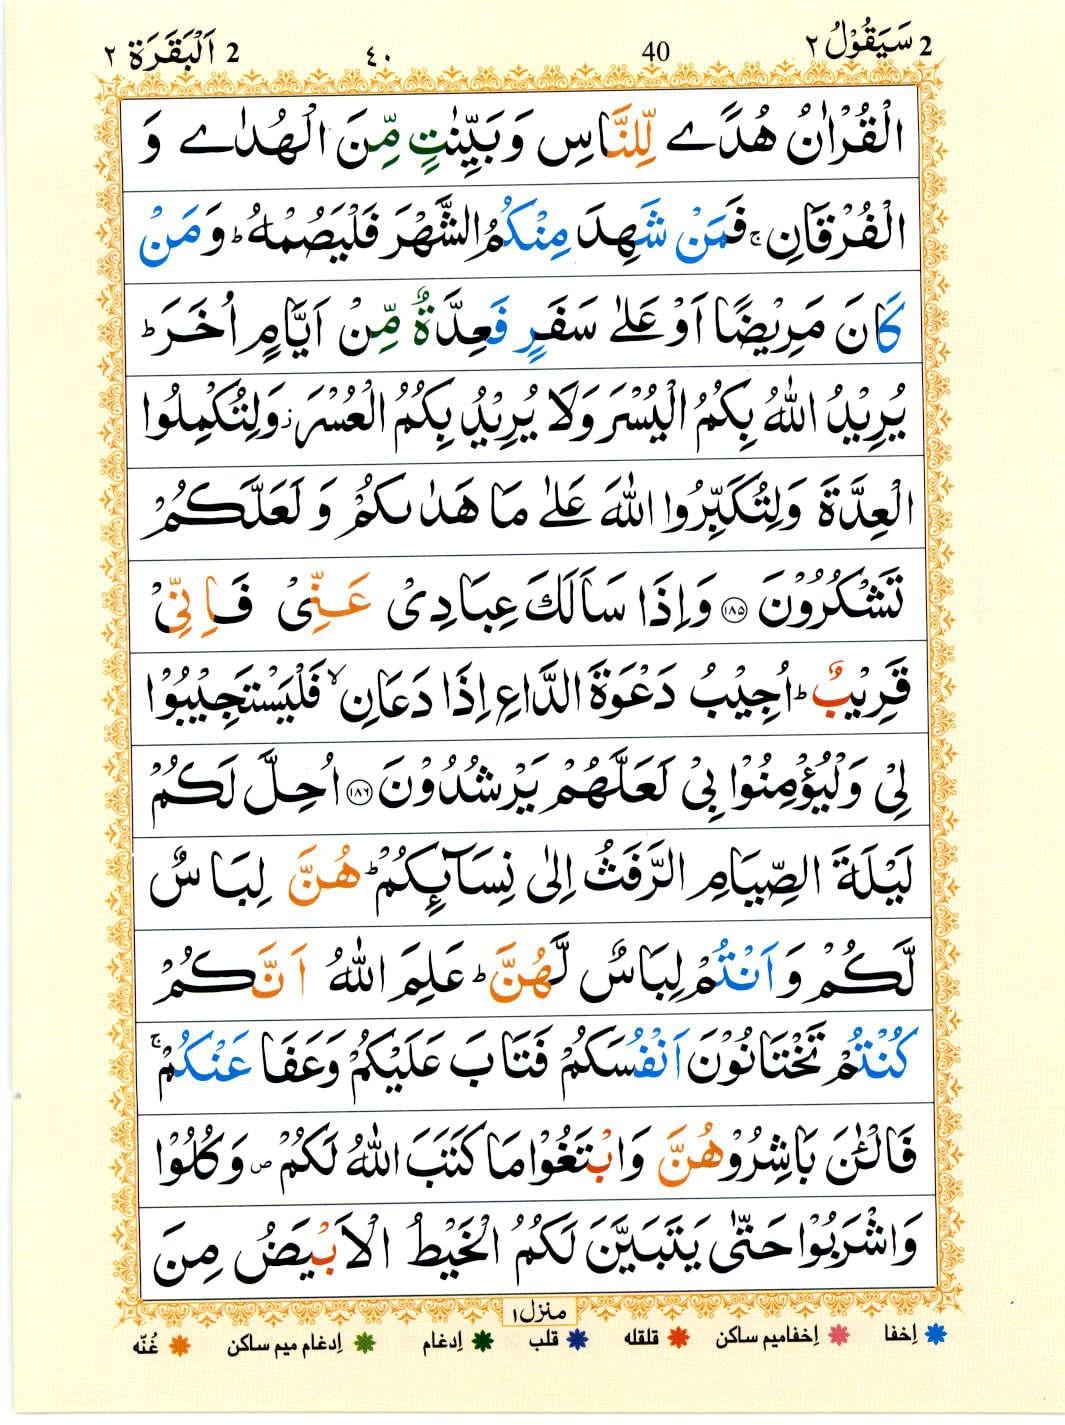 2 سَيَقُوْلُ ٢ 40 ٤٠ 2 اَلْبَقَرَة ٢
الْقُرْاٰنُ هُدًے لِّلنَّاسِ وَبَيِّنٰتٍ مِّنَ الْهُدٰے وَ
الْفُرْقَانِ ۚ فَمَنْ شَهِدَ مِنْكُمُ الشَّهْرَ فَلْيَصُمْهُ ؕ وَمَنْ
كَانَ مَرِيْضًا اَوْ عَلٰے سَفَرٍ فَعِدَّةٌ مِّنْ اَيَّامٍ اُخَرَ ؕ
يُرِيْدُ اللّٰهُ بِكُمُ الْيُسْرَ وَلَا يُرِيْدُ بِكُمُ الْعُسْرَ ز وَلِتُكْمِلُوا
الْعِدَّةَ وَلِتُكَبِّرُوا اللّٰهَ عَلٰے مَا هَدٰىكُمْ وَ لَعَلَّكُمْ
تَشْكُرُوْنَ ۝١٨٥ وَاِذَا سَاَلَكَ عِبَادِىْ عَنِّىْ فَاِنِّىْ
قَرِيْبٌ ؕ اُجِيْبُ دَعْوَةَ الدَّاعِ اِذَا دَعَانِ ۙ فَلْيَسْتَجِيْبُوْا
لِىْ وَلْيُؤْمِنُوْا بِىْ لَعَلَّهُمْ يَرْشُدُوْنَ ۝١٨٦ اُحِلَّ لَكُمْ
لَيْلَةَ الصِّيَامِ الرَّفَثُ اِلٰى نِسَآئِكُمْ ؕ هُنَّ لِبَاسٌ
لَّكُمْ وَاَنْتُمْ لِبَاسٌ لَّهُنَّ ؕ عَلِمَ اللّٰهُ اَنَّكُمْ
كُنْتُمْ تَخْتَانُوْنَ اَنْفُسَكُمْ فَتَابَ عَلَيْكُمْ وَعَفَا عَنْكُمْ ۚ
فَالْـٰٔنَ بَاشِرُوْهُنَّ وَابْتَغُوْا مَا كَتَبَ اللّٰهُ لَكُمْ ص وَكُلُوْا
وَاشْرَبُوْا حَتّٰى يَتَبَيَّنَ لَكُمُ الْخَيْطُ الْاَبْيَضُ مِنَ
منزل ١
اِخفا اِخفامیم ساکن قلقله قلب اِدغام اِدغام میم ساکن غُنّه